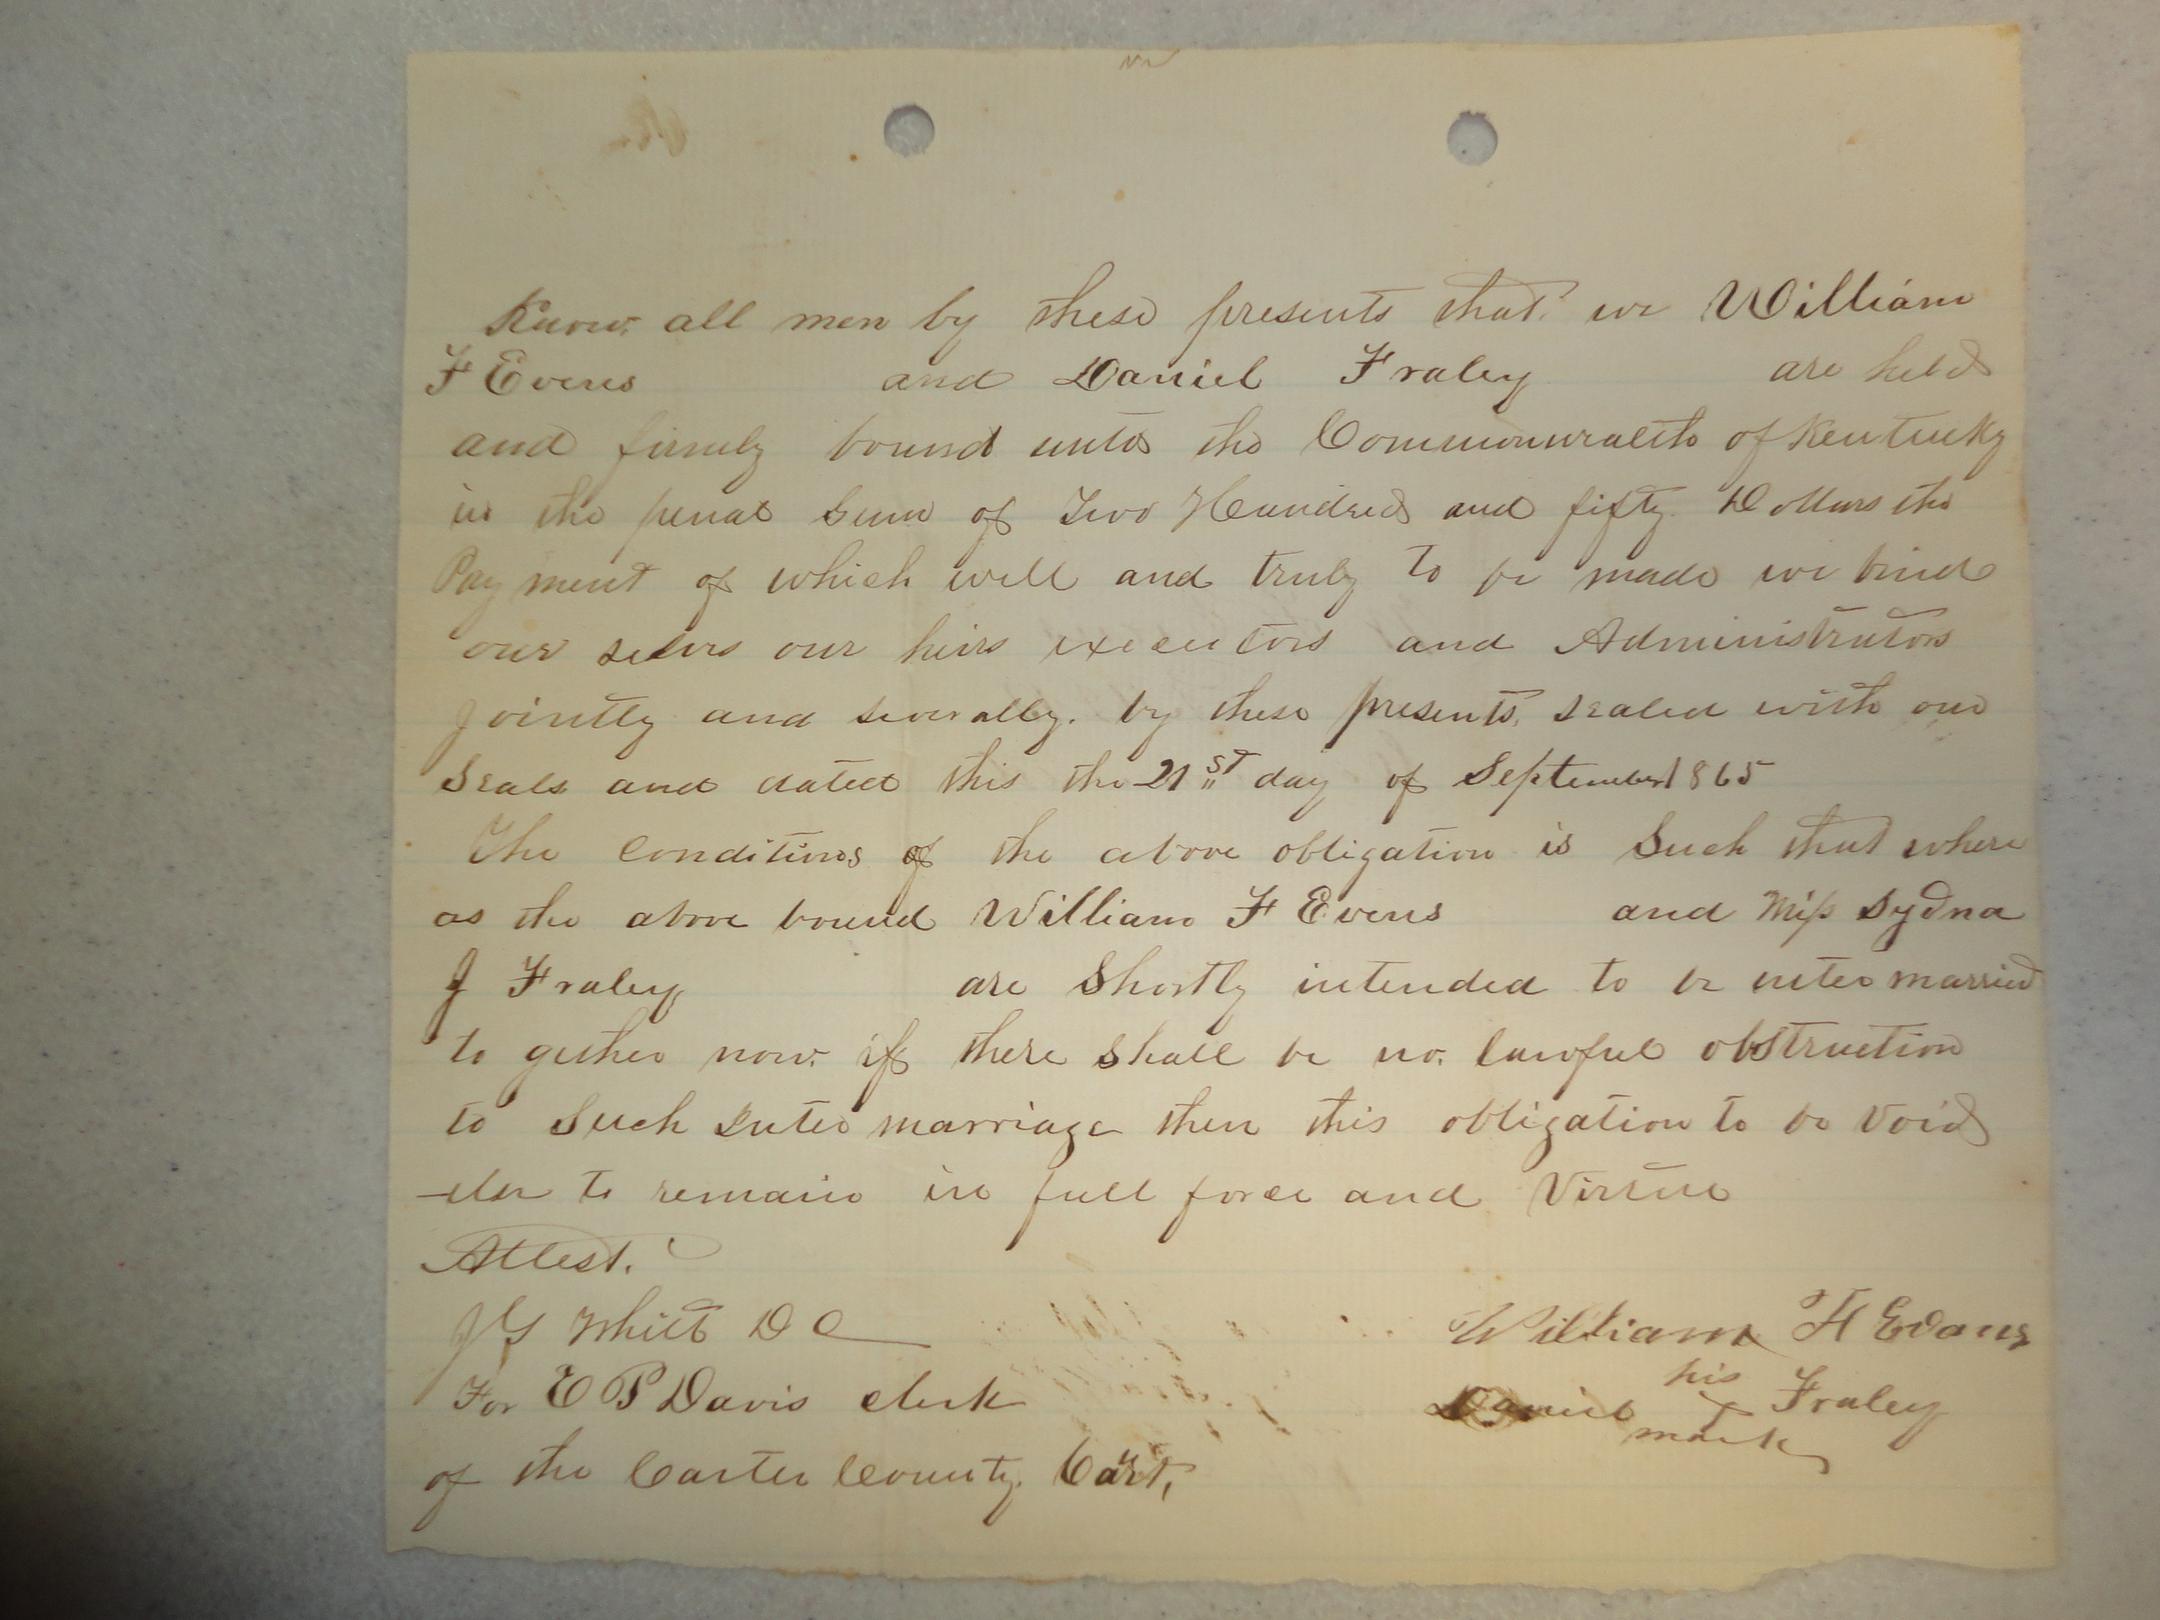 Know all men by these presents that we William
F Evens and Daniel Fraley are held
and firmly bound unto the Commonwealth of Kentucky
in the penal Sum of Two Hundred and fifty Dollars the
Pay ment of which well and truly to be made we bind
our selvs our heirs executors and Administrators
Jointly and severally. by these presents, sealed with our
Seals and dated this the 21st day of September 1865
The Conditions of the above obligation is Such that where
as the above bound William F Evens and Miss Sydna
J Fraley are Shortly intended to be inter married
to gether now if there shall be no lawful obstruction
to Such Inter marriage then this obligation to be Void
else to remain in full force and Virtue
Attest.
Whitt D C
William F Evans
For E P Davis clerk
his
Daniel x Fraley
mark
of the Carter County Court,